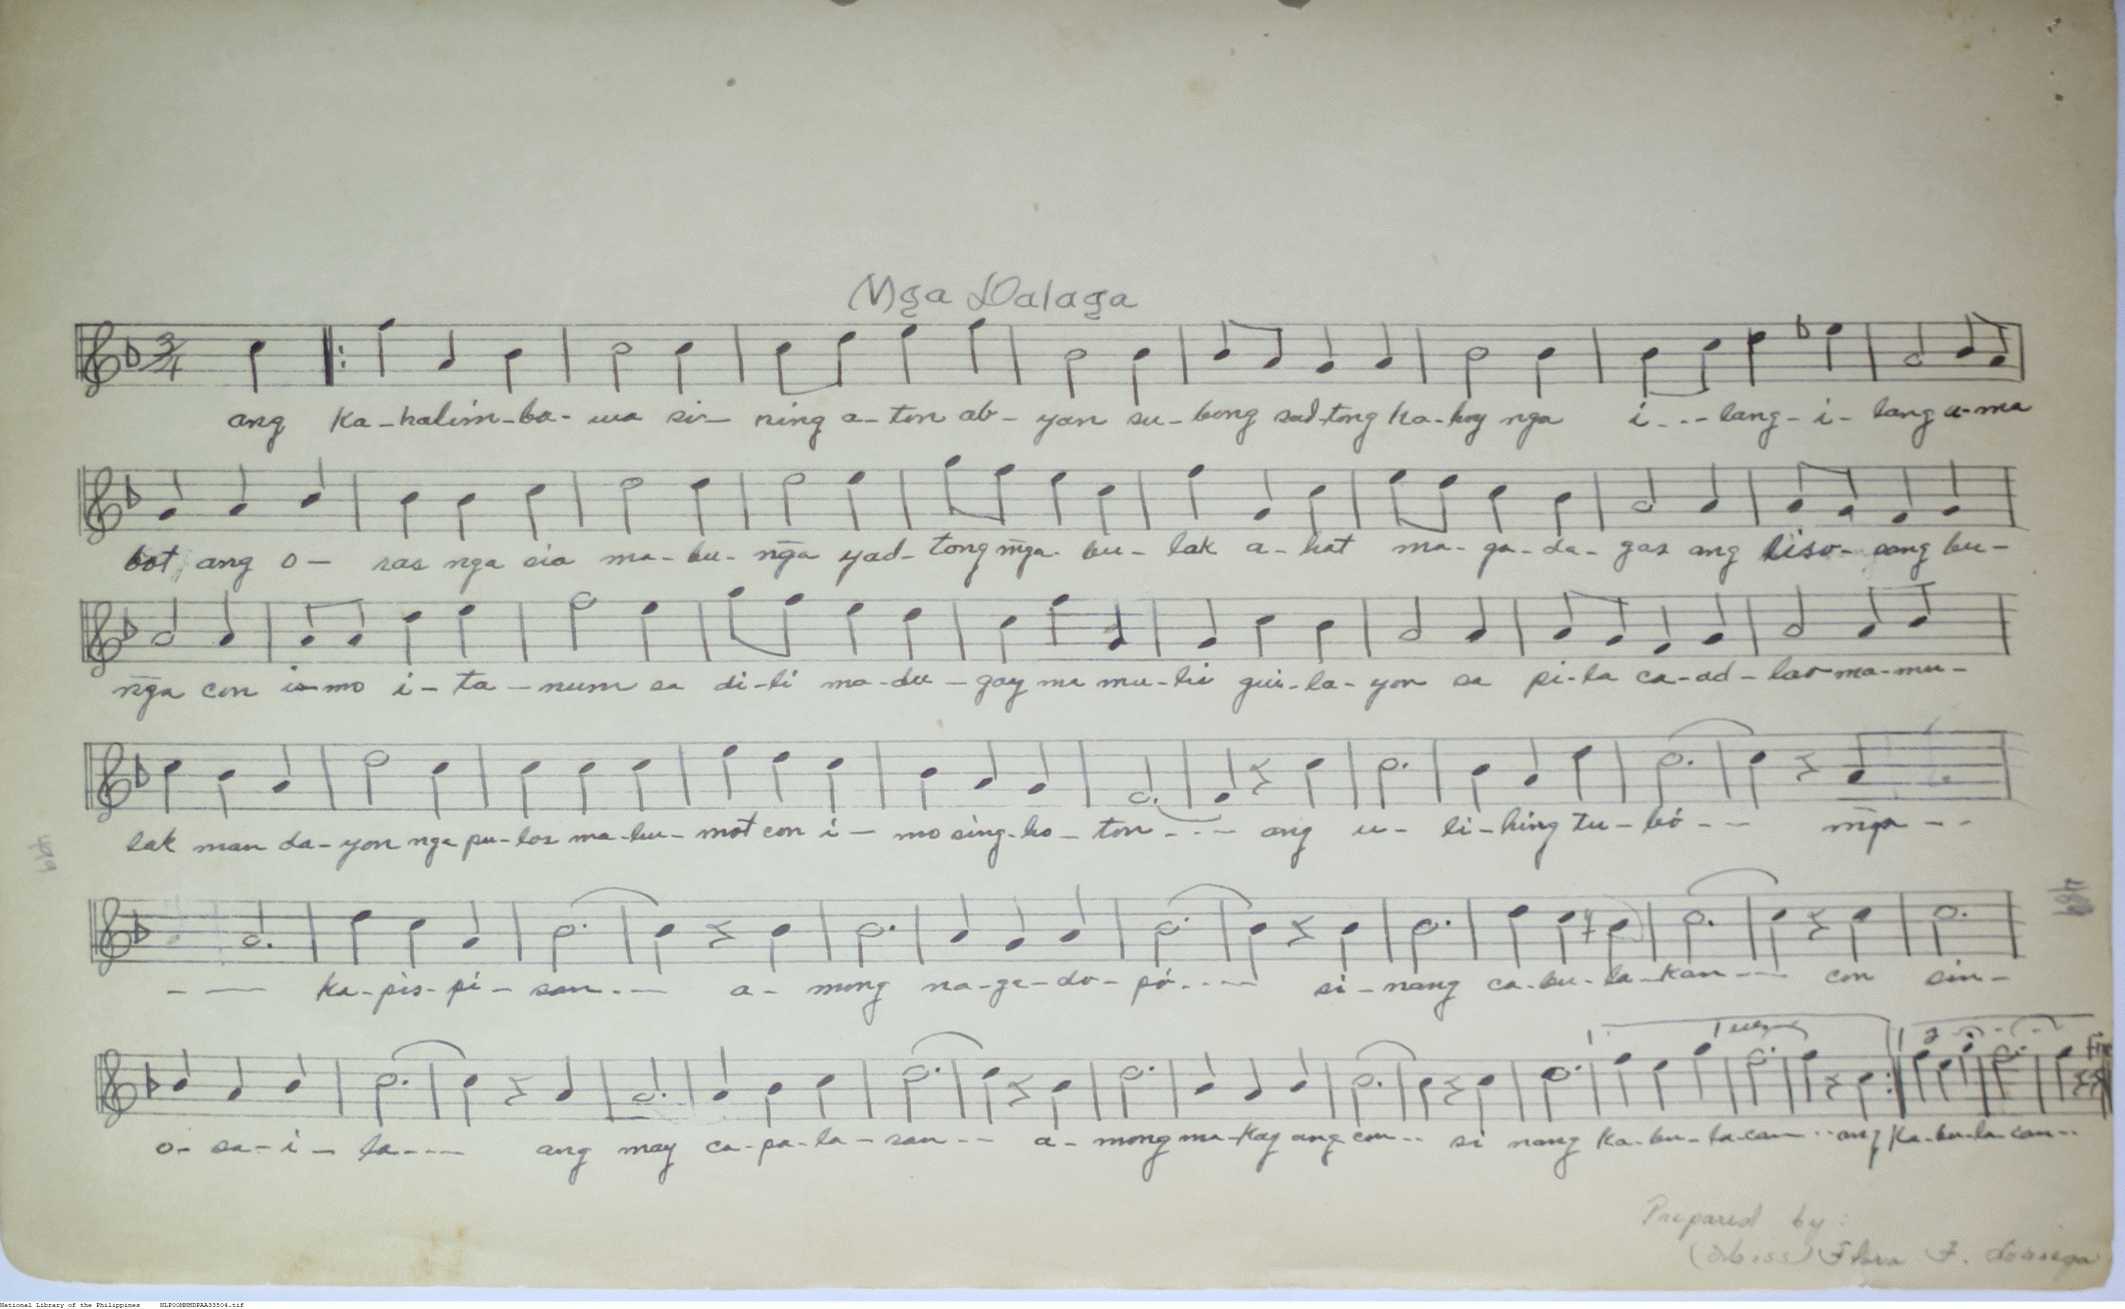 Mga Dalaga
3/4
ang ka-halim-ba-wa si-ning a-ton ab-yan su-bong sad-tong ka-hoy nga i...-lang-i-lang u-ma
bot ang o-ras nga sia ma-bu-n̄ga yad-tong m̄ga bu-lak a-kat ma-ga-da-gas ang bu-
n̄ga con i-mo i-ta-num sa di-li ma-du-gay ma mu-ki gui-la-yon sa pi-la ca-ad-lao ma-mu-
lak man da-yon nga pu-los ma-hu-mot con i-mo sing-ho-ton---- ang u-li-hing tu-bó-- m̄ga--
ka-pis-pi-san... a-mung na-ge-do-pó.... si-nang ca-bu-la-kan--- con sin-
o-sa-i-la---- ang may ca-pa-la-san-- a-mong ma-kay ang con-- si nang ka-bu-la-can--ang ka-bu-la-can--
Prepared by:
(Miss) Flora F.
National Library of the Philippines